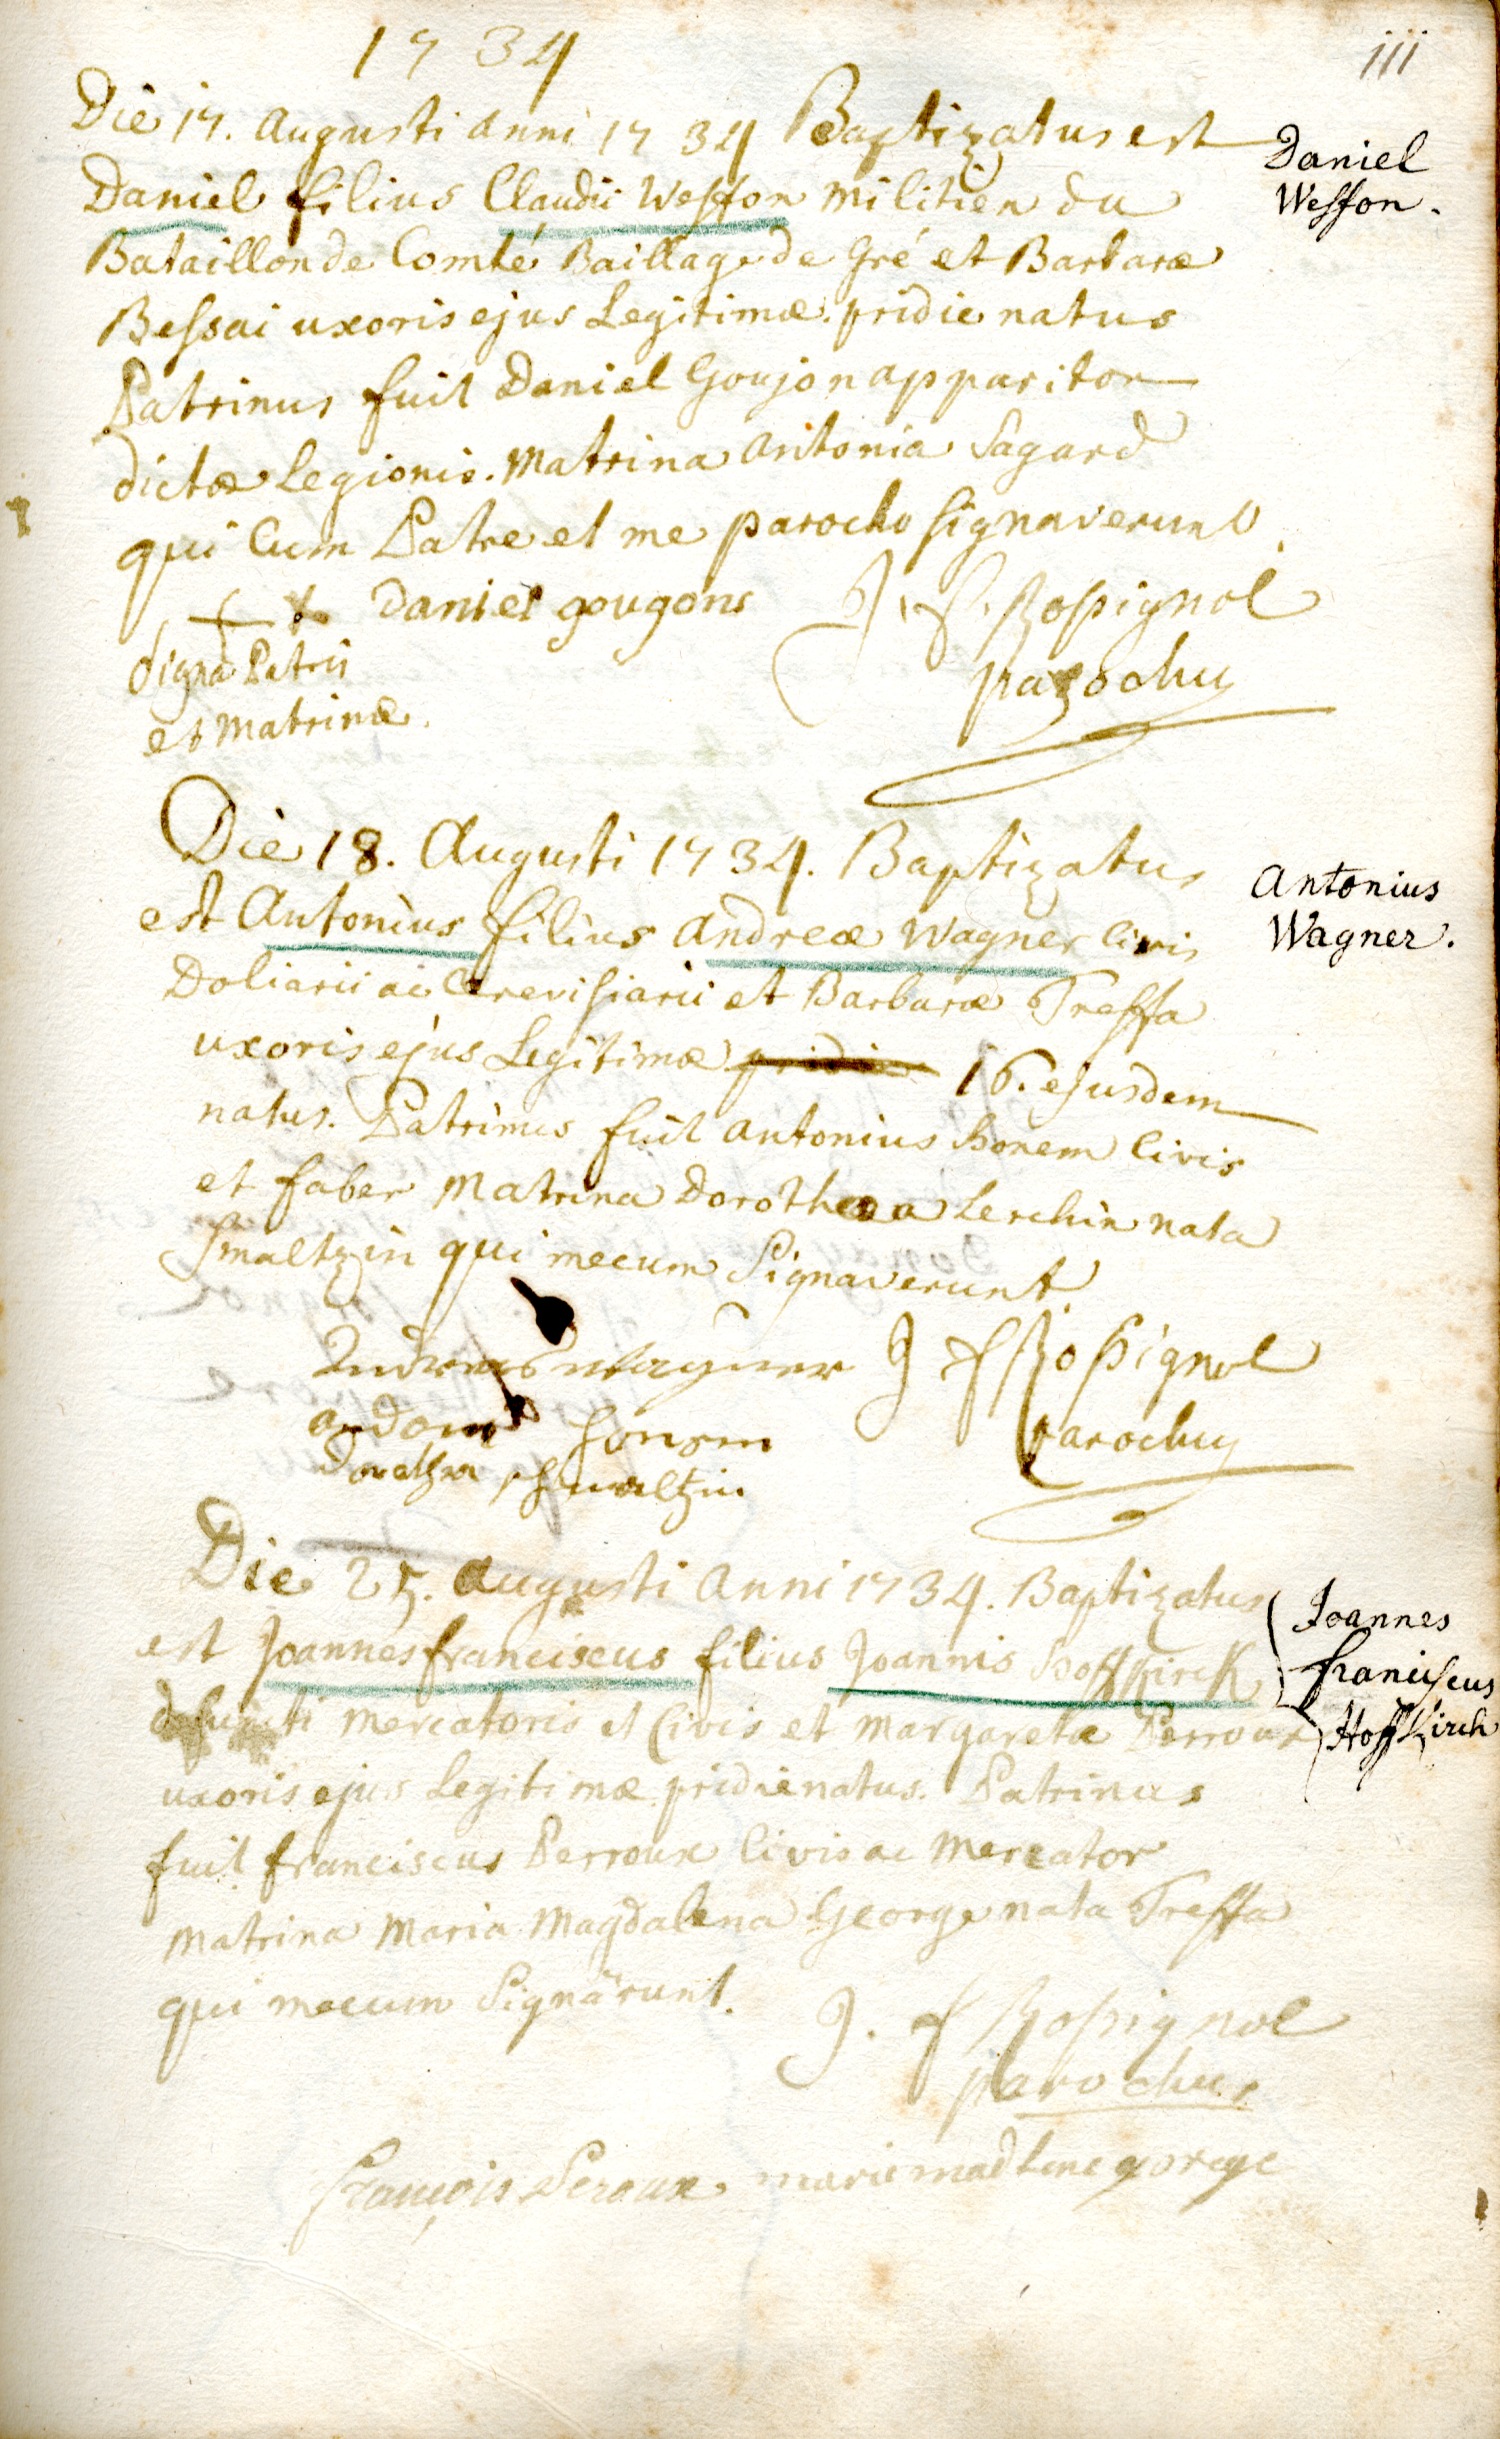 1734
111
Die 17. Augusti anni 1734 Baptizatus est
Daniel filius Claudii Wesson militien du
Bataillon de Comté Baillage de Gré et Barbaræ
Bessai uxoris ejus Legitimæ. pridie natus
Patrinus fuit Daniel Goujon apparitor
dictæ Legionis. Matrina Antonia Sagard
qui Cum Patre et me parocho signaverunt.
Daniel
Wesson.
daniel gougons
signa Patris
et matrinæ.
J. f. Rossignol
parochus
Die 18. Augusti 1734. Baptizatus
est Antonius filius Andreæ Wagner Civis
Doliarii ac Cerevisiarii et Barbaræ Treffa
uxoris ejus Legitimæ pridie 16. ejusdem
natus. Patrinus fuit Antonius honem Civis
et faber Matrina Dorothea Lerchin nata
Smaltzin qui mecum Signaverunt
Antonius
Wagner.
Andreas wagner
honem
schmaltzin
J f Rossignol
parochus
Die 25. Augusti Anni 1734. Baptizatus
est Joannes franciscus filius Joannis Hoffkirck
defuncti Mercatoris et Civis et Margaretæ Perroux
uxoris ejus Legitimæ pridie natus. Patrinus
fuit franciscus Perroux Civis ac Mercator
Matrina Maria Magdalena George nata Treffa
qui mecum Signârunt.
Joannes
franciscus
Hoffkirch
J. f Rossignol
parochus
françois Peroux marie madlene gorge